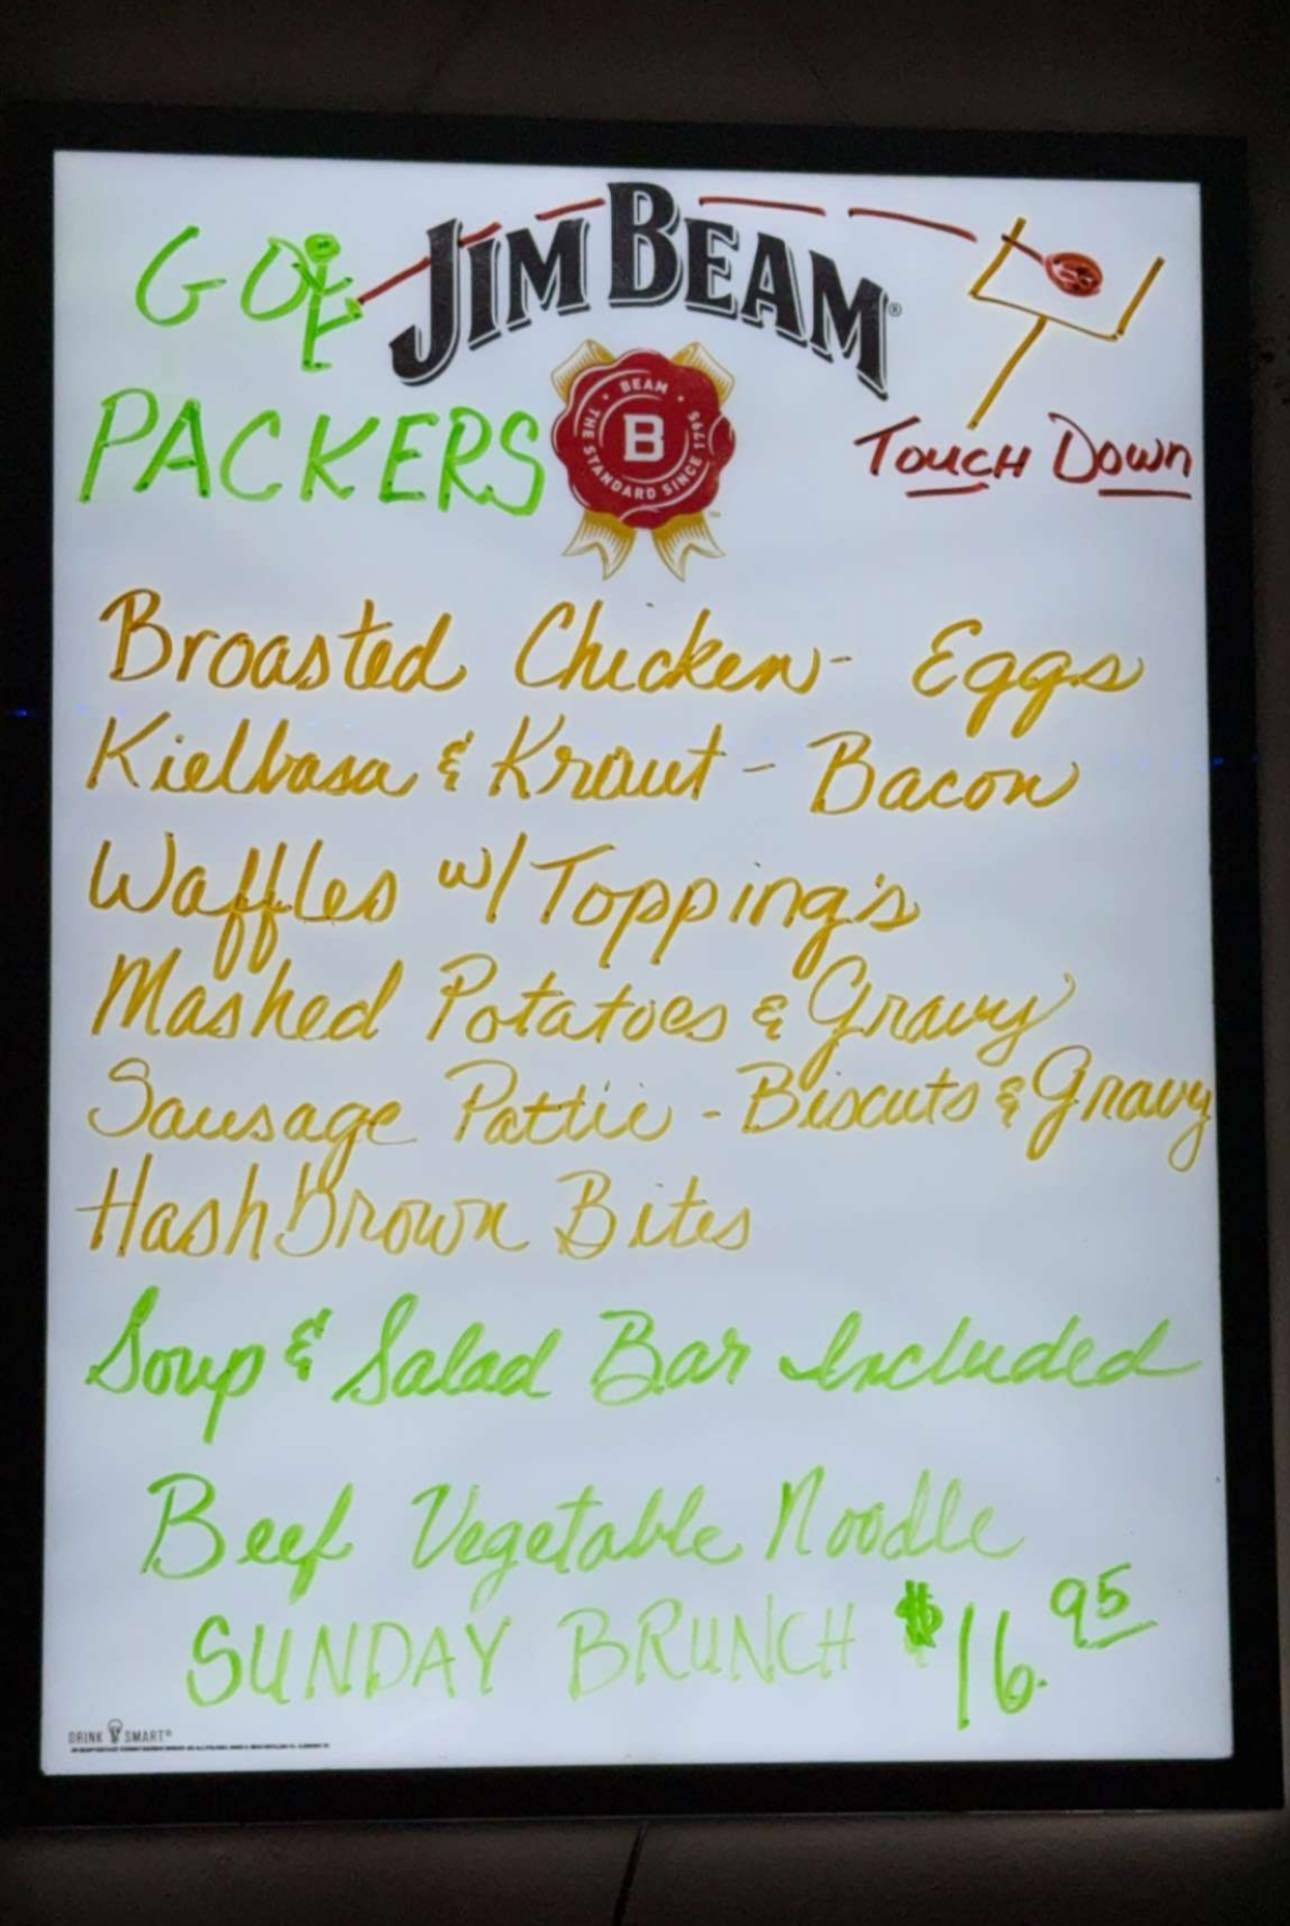 GO
JIM BEAM®
PACKERS
BEAM
B
THE STANDARD SINCE 1795
TOUCH DOWN
Broasted Chicken - Eggs
Kielbasa & Kraut - Bacon
Waffles w/ Topping's
Mashed Potatoes & Gravy
Sausage Pattie - Biscuts & Gravy
HashBrown Bites
Soup & Salad Bar Included
Beef Vegetable Noodle
SUNDAY BRUNCH $16.95
DRINK SMART®